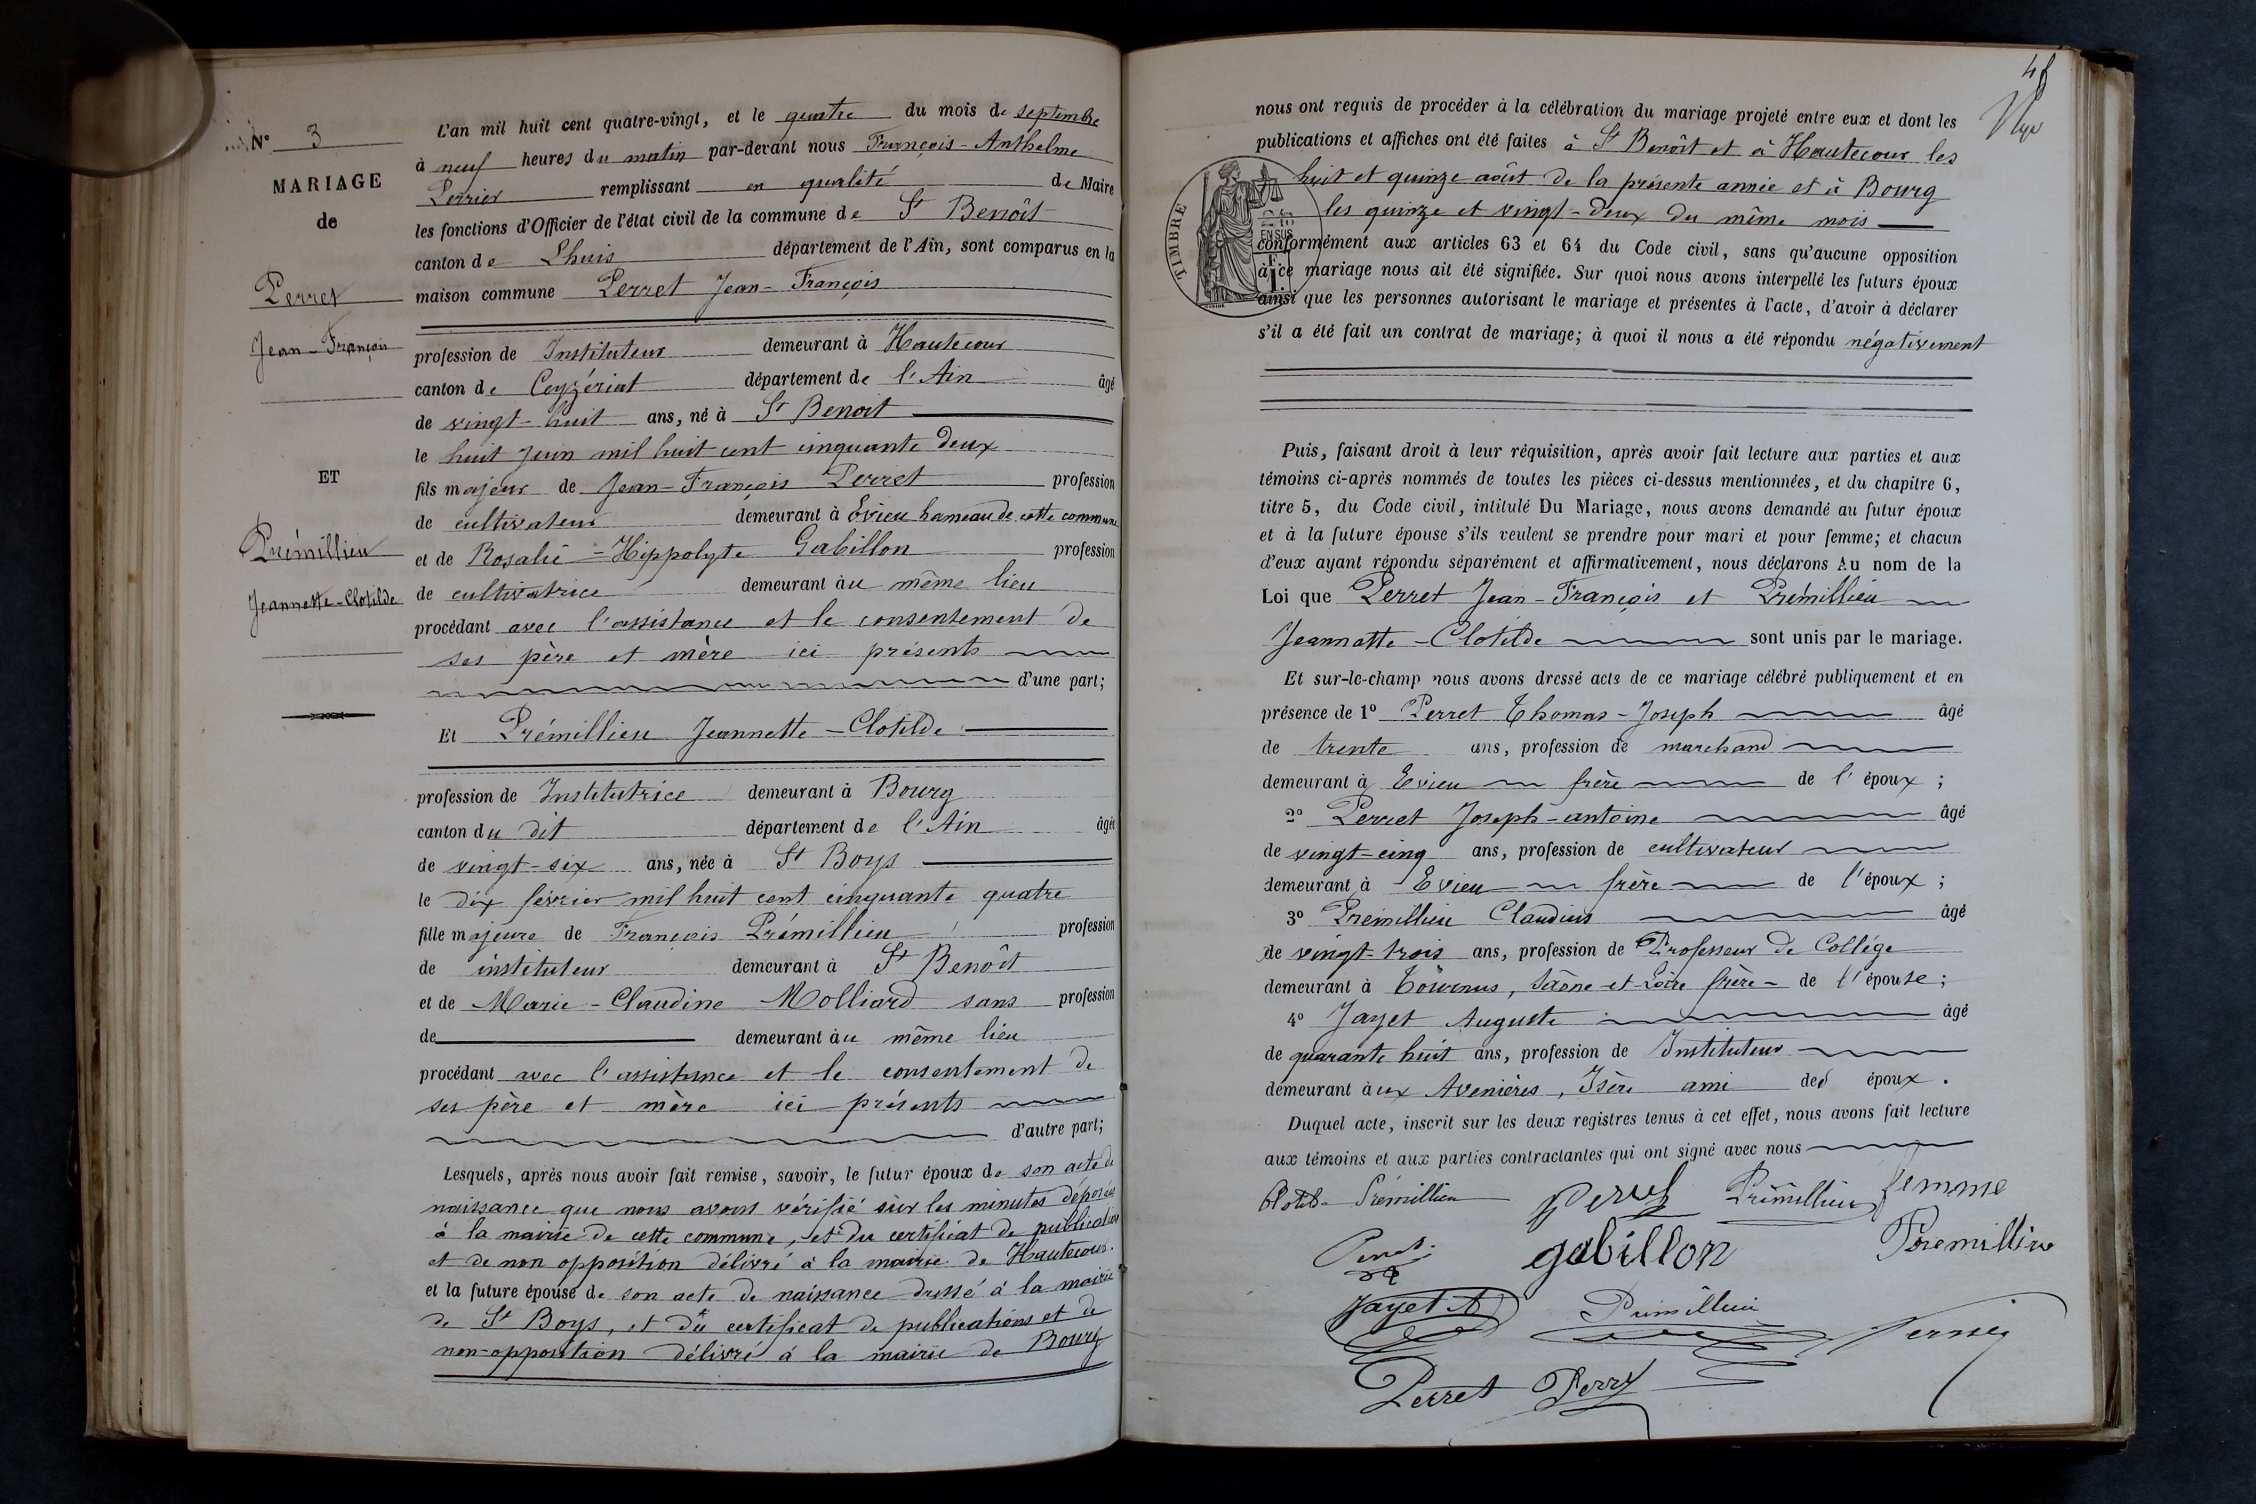 N° 3
MARIAGE
de
Perret
Jean-François
ET
Prémillieu
Jeannette-Clotilde
L'an mil huit cent quatre-vingt, et le quatre du mois de septembre
à neuf heures du matin par-devant nous François-Anthelme
Perrier remplissant en qualité de Maire
les fonctions d'Officier de l'état civil de la commune de St Benoît
canton de Lhuis département de l'Ain, sont comparus en la
maison commune Perret Jean-François
profession de Instituteur demeurant à Hautecour
canton de Ceyzériat département de l'Ain âgé
de vingt-huit ans, né à St Benoit
le huit juin mil huit cent cinquante deux
fils majeur de Jean-François Perret profession
de cultivateur demeurant à Evieu hameau de cette commune
et de Rosalie-Hippolyte Gabillon profession
de cultivatrice demeurant au même lieu
procédant avec l'assistance et le consentement de
ses père et mère ici présents
d'une part;
Et Prémillieu Jeannette-Clotilde
profession de Institutrice demeurant à Bourg
canton du dit département de l'Ain âgée
de vingt-six ans, née à St Boys
le dix février mil huit cent cinquante quatre
fille majeure de François Prémillieu profession
de instituteur demeurant à St Benoît
et de Marie-Claudine Molliard sans profession
de demeurant au même lieu
procédant avec l'assistance et le consentement de
ses père et mère ici présents
d'autre part;
Lesquels, après nous avoir fait remise, savoir, le futur époux de son acte de
naissance que nous avons vérifié sur les minutes déposées
à la mairie de cette commune, et du certificat de publication
et de non opposition délivré à la mairie de Hautecour.
et la future épouse de son acte de naissance dressé à la mairie
de St Boys, et du certificat de publications et de
non-opposition délivré à la mairie de Bourg
nous ont requis de procéder à la célébration du mariage projeté entre eux et dont les
publications et affiches ont été faites à St Benoît et à Hautecour les
huit et quinze août de la présente année et à Bourg
les quinze et vingt-deux du même mois
TIMBRE
conformément aux articles 63 et 64 du Code civil, sans qu'aucune opposition
à ce mariage nous ait été signifiée. Sur quoi nous avons interpellé les futurs époux
ainsi que les personnes autorisant le mariage et présentes à l'acte, d'avoir à déclarer
s'il a été fait un contrat de mariage; à quoi il nous a été répondu négativement
Puis, faisant droit à leur réquisition, après avoir fait lecture aux parties et aux
témoins ci-après nommés de toutes les pièces ci-dessus mentionnées, et du chapitre 6,
titre 5, du Code civil, intitulé Du Mariage, nous avons demandé au futur époux
et à la future épouse s'ils veulent se prendre pour mari et pour femme; et chacun
d'eux ayant répondu séparément et affirmativement, nous déclarons Au nom de la
Loi que Perret Jean-François et Prémillieu
Jeannette-Clotilde sont unis par le mariage.
Et sur-le-champ nous avons dressé acte de ce mariage célébré publiquement et en
présence de 1° Perret Thomas-Joseph âgé
de trente ans, profession de marchand
demeurant à Evieu frère de l'époux;
2° Perret Joseph-antoine âgé
de vingt-cinq ans, profession de cultivateur
demeurant à Evieu frère de l'époux;
3° Prémillieu Claudius âgé
de vingt-trois ans, profession de Professeur de Collège
demeurant à Tournus, Saône-et-Loire frère de l'épouse;
4° Jayet Auguste âgé
de quarante huit ans, profession de Instituteur
demeurant aux Avenières, Isère ami des époux.
Duquel acte, inscrit sur les deux registres tenus à cet effet, nous avons fait lecture
aux témoins et aux parties contractantes qui ont signé avec nous
Clotilde Prémillieu Perret Prémillieu femme
Perret gabillon Premillieu
Jayet A Prémillieu Perrier
Perret Perret